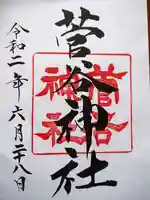 菅谷神社
令和二年六月二十八日
菅谷神社